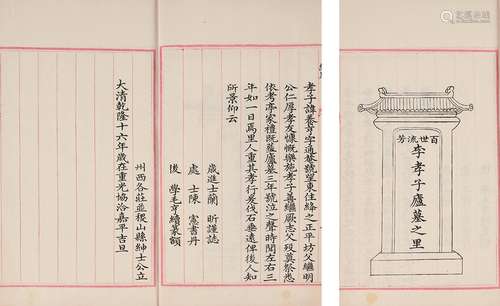 百世流芳
李孝子廬墓之里
孝子諱養亨字通菴號望東住絳之正平坊父繼明
公仁厚孝友慷慨樂施孝子善繼厥志父歿奠祭悉
依考亭家禮既葬廬墓三年號泣之聲時聞左右三
年如一日爲里人重其孝行爰伐石垂遠俾後人知
所景仰云
歲進士蘭 昕謹誌
處 士陳 憲書丹
後 學毛亨續篆額
州西各莊並稷山縣紳士公立
大清乾隆十六年歲在重光協洽嘉平吉旦